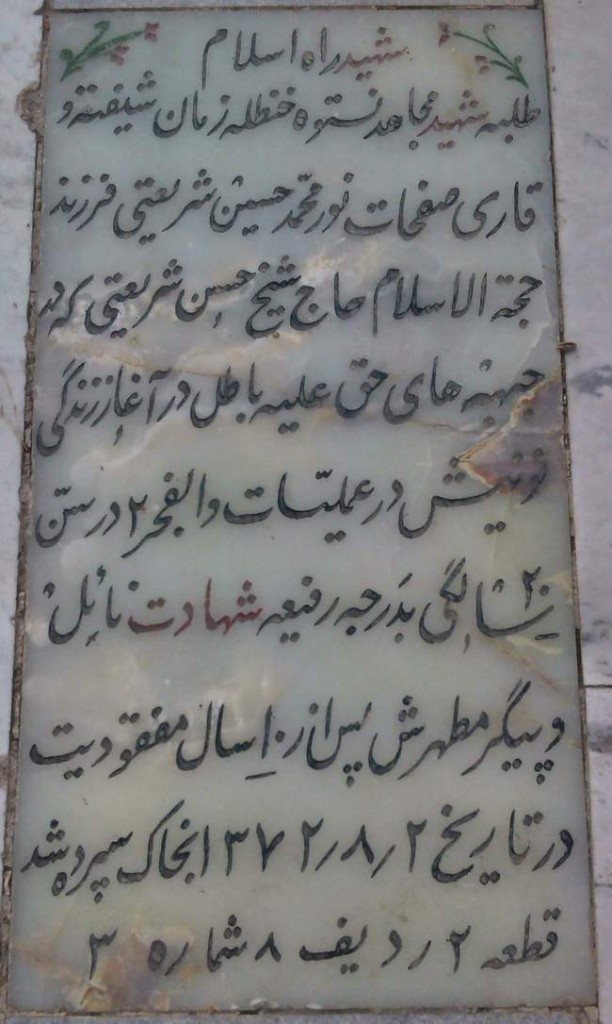 شهید راه اسلام
طلبه شهید مجاهد نستوه حنظله زمان شیفته و
قاری صفحات نور محمد حسین شریعتی فرزند
حجة الاسلام حاج شیخ حسن شریعتی که در
جبهه های حق علیه باطل در آغاز زندگی
نوینش در عملیات والفجر ۲ در سن
۲۰ سالگی بدرجه رفیعه شهادت نائل
و پیکر مطهرش پس از ۱۰ سال مفقودیت
در تاریخ ۲ / ۸ / ۱۳۷۲ بخاک سپرده شد
قطعه ۲ ردیف ۸ شماره ۳